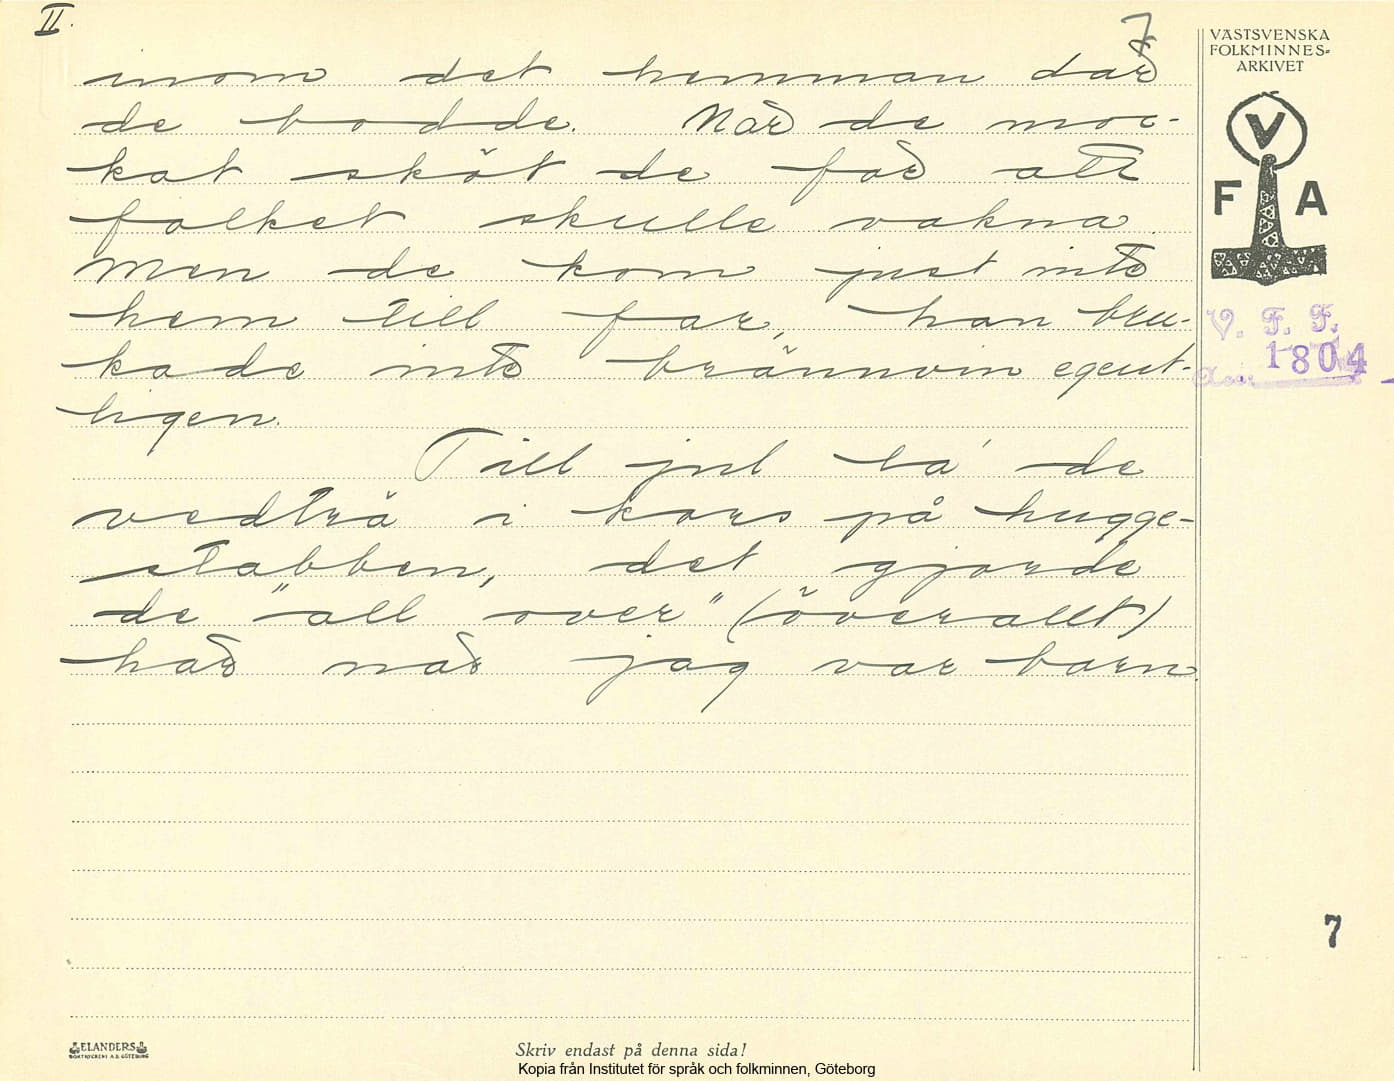 II.
7
inom det hemman där
de bodde. När de moc-
kat sköt de för att
folket skulle vakna.
Men de kom just inte
hem till far, han bru-
kade inte brännvin egent-
ligen.
Till jul la' de
vedträ i kors på hugge-
stabben, det gjorde
de "all over" (överallt)
här när jag var barn.
VÄSTSVENSKA
FOLKMINNES-
ARKIVET
V
F A
V. F. F.
1804
7
ELANDERS
BOKTRYCKERI A.B. GÖTEBORG
Skriv endast på denna sida!
Kopia från Institutet för språk och folkminnen, Göteborg